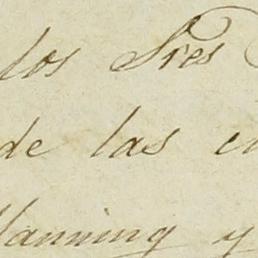 los Sres
de las
Manning y